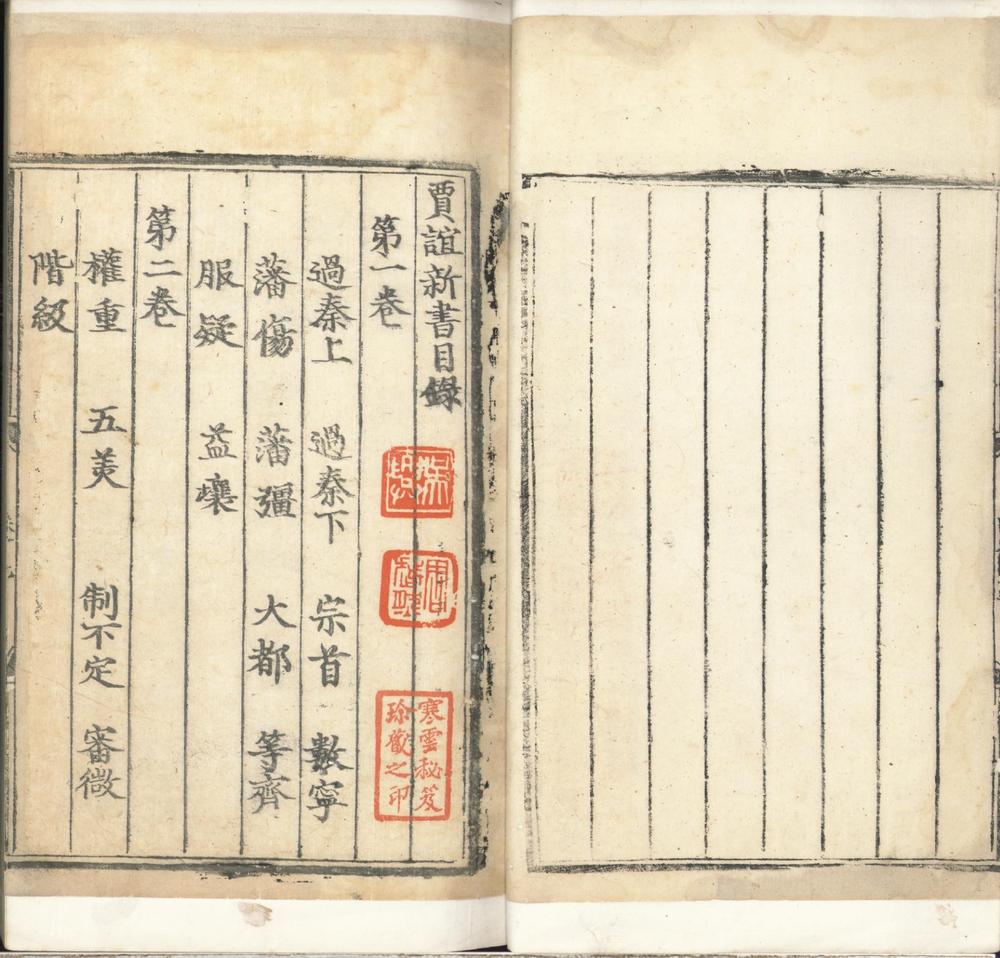 賈誼新書目錄
第一卷
過秦上 過秦下 宗首 數寧
藩傷 藩彊 大都 等齊
服疑 益壤
第二卷
權重 五美 制不定 審微
階級
寒雲秘笈
珍藏之印